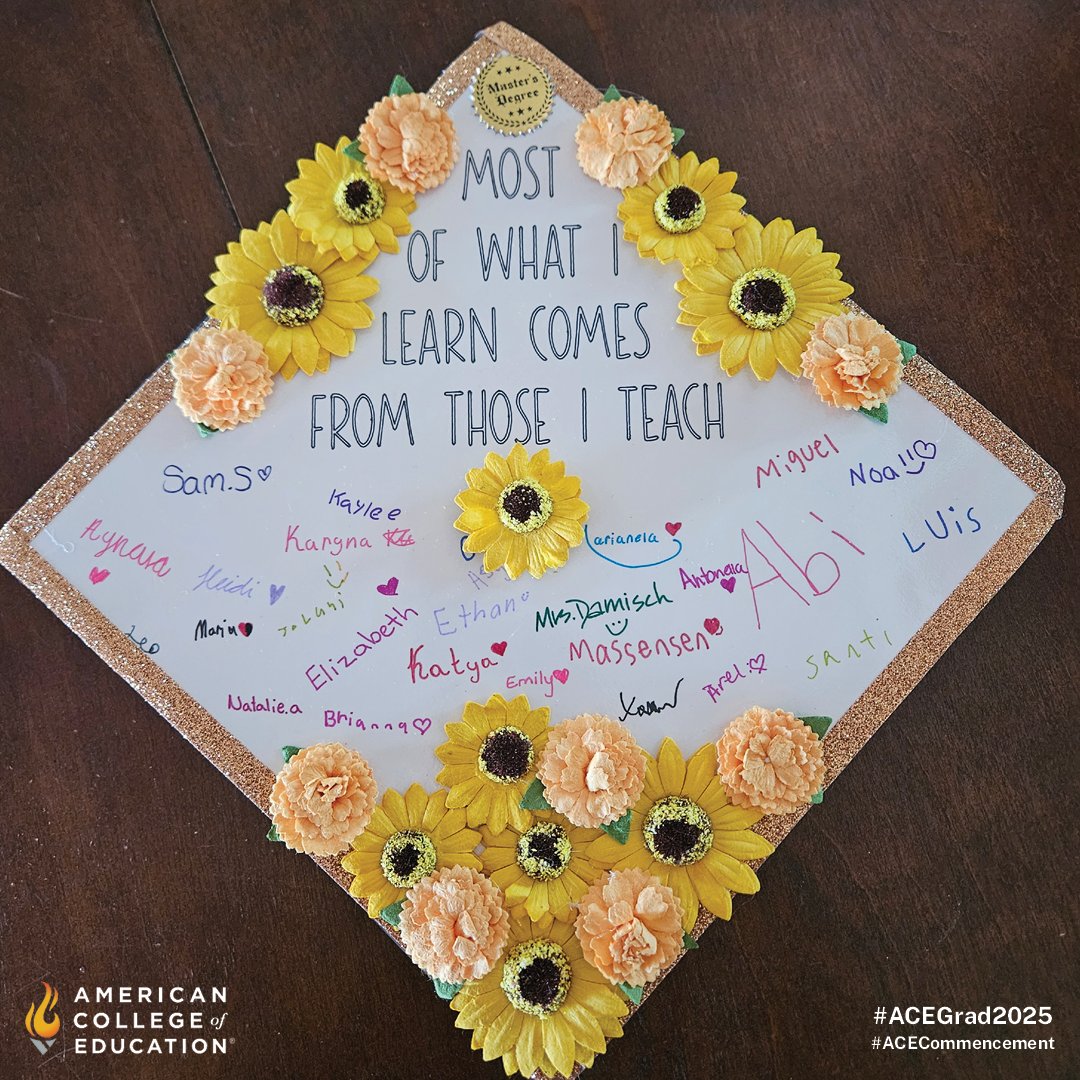 Master's
Degree
MOST
OF WHAT I
LEARN COMES
FROM THOSE I TEACH
Sam.S
Kaylee
Karyna
Heidi
Jolani
Leo
Elizabeth
Ethan
Larianela
Mrs. Damisch
Antonella
Massensen
Katya
Emily
Natalie.a
Brianna
Miguel
Noa!!
Abi
LUis
Arel:
santi
AMERICAN
COLLEGE of
EDUCATION®
#ACEGrad2025
#ACECommencement